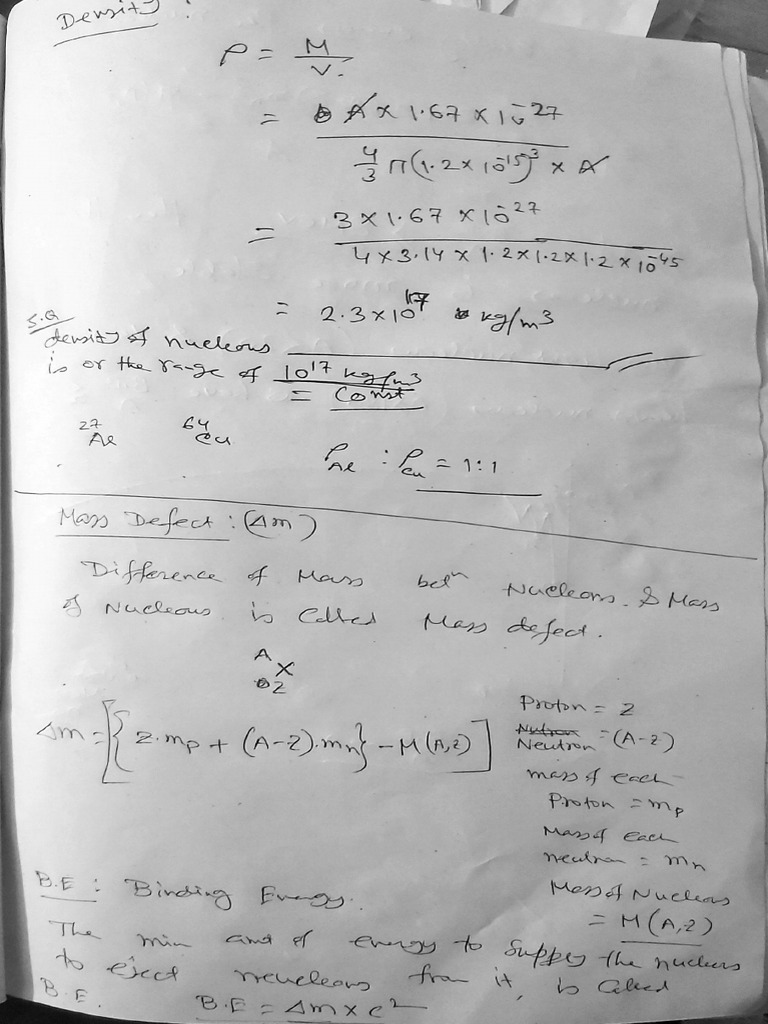 Density :
ρ = M / V.
= A × 1.67 × 10^-27 / 4/3 π (1.2 × 10^-15)^3 × A
= 3 × 1.67 × 10^-27 / 4 × 3.14 × 1.2 × 1.2 × 1.2 × 10^-45
= 2.3 × 10^17 kg/m3
S.Q
density of nucleous
is or the range of 10^17 kg/m3
= Const
27 Al 64 Cu ρAl : ρCu = 1:1
Mass Defect : (Δm)
Difference of Mass betn Nucleons. & Mass
of Nucleous is Called Mass defect.
A X
Z
Δm = [{Z.mp + (A-Z).mn} - M(A,Z)]
Proton = Z
Nutron
Neutron = (A-Z)
mass of each
Proton = mp
Mass of each
neutron = mn
Mass of Nucleus
= M(A,Z)
B.E : Binding Energy.
The min amt of energy to supply the nucleus
to eject neucleons from it, is Called
B.E. B.E = Δm × c^2